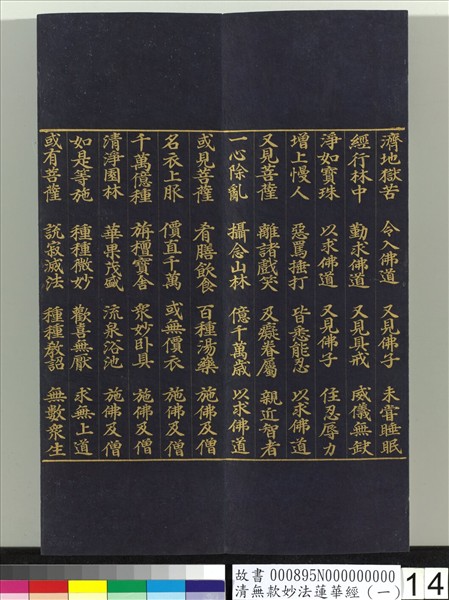 濟地獄苦　令入佛道　又見佛子　未甞睡眠
經行林中　勤求佛道　又見具戒　威儀無缺
淨如寶珠　以求佛道　又見佛子　住忍辱力
增上慢人　惡罵捶打　皆悉能忍　以求佛道
又見菩薩　離諸戲笑　及癡眷屬　親近智者
一心除亂　攝念山林　億千萬歲　以求佛道
或見菩薩　肴膳飲食　百種湯藥　施佛及僧
名衣上服　價直千萬　或無價衣　施佛及僧
千萬億種　栴檀寶舍　衆妙卧具　施佛及僧
清淨園林　華果茂盛　流泉浴池　施佛及僧
如是等施　種種微妙　歡喜無厭　求無上道
或有菩薩　說寂滅法　種種教詔　無數衆生
故書 000895N000000000
清無款妙法蓮華經（一）
14